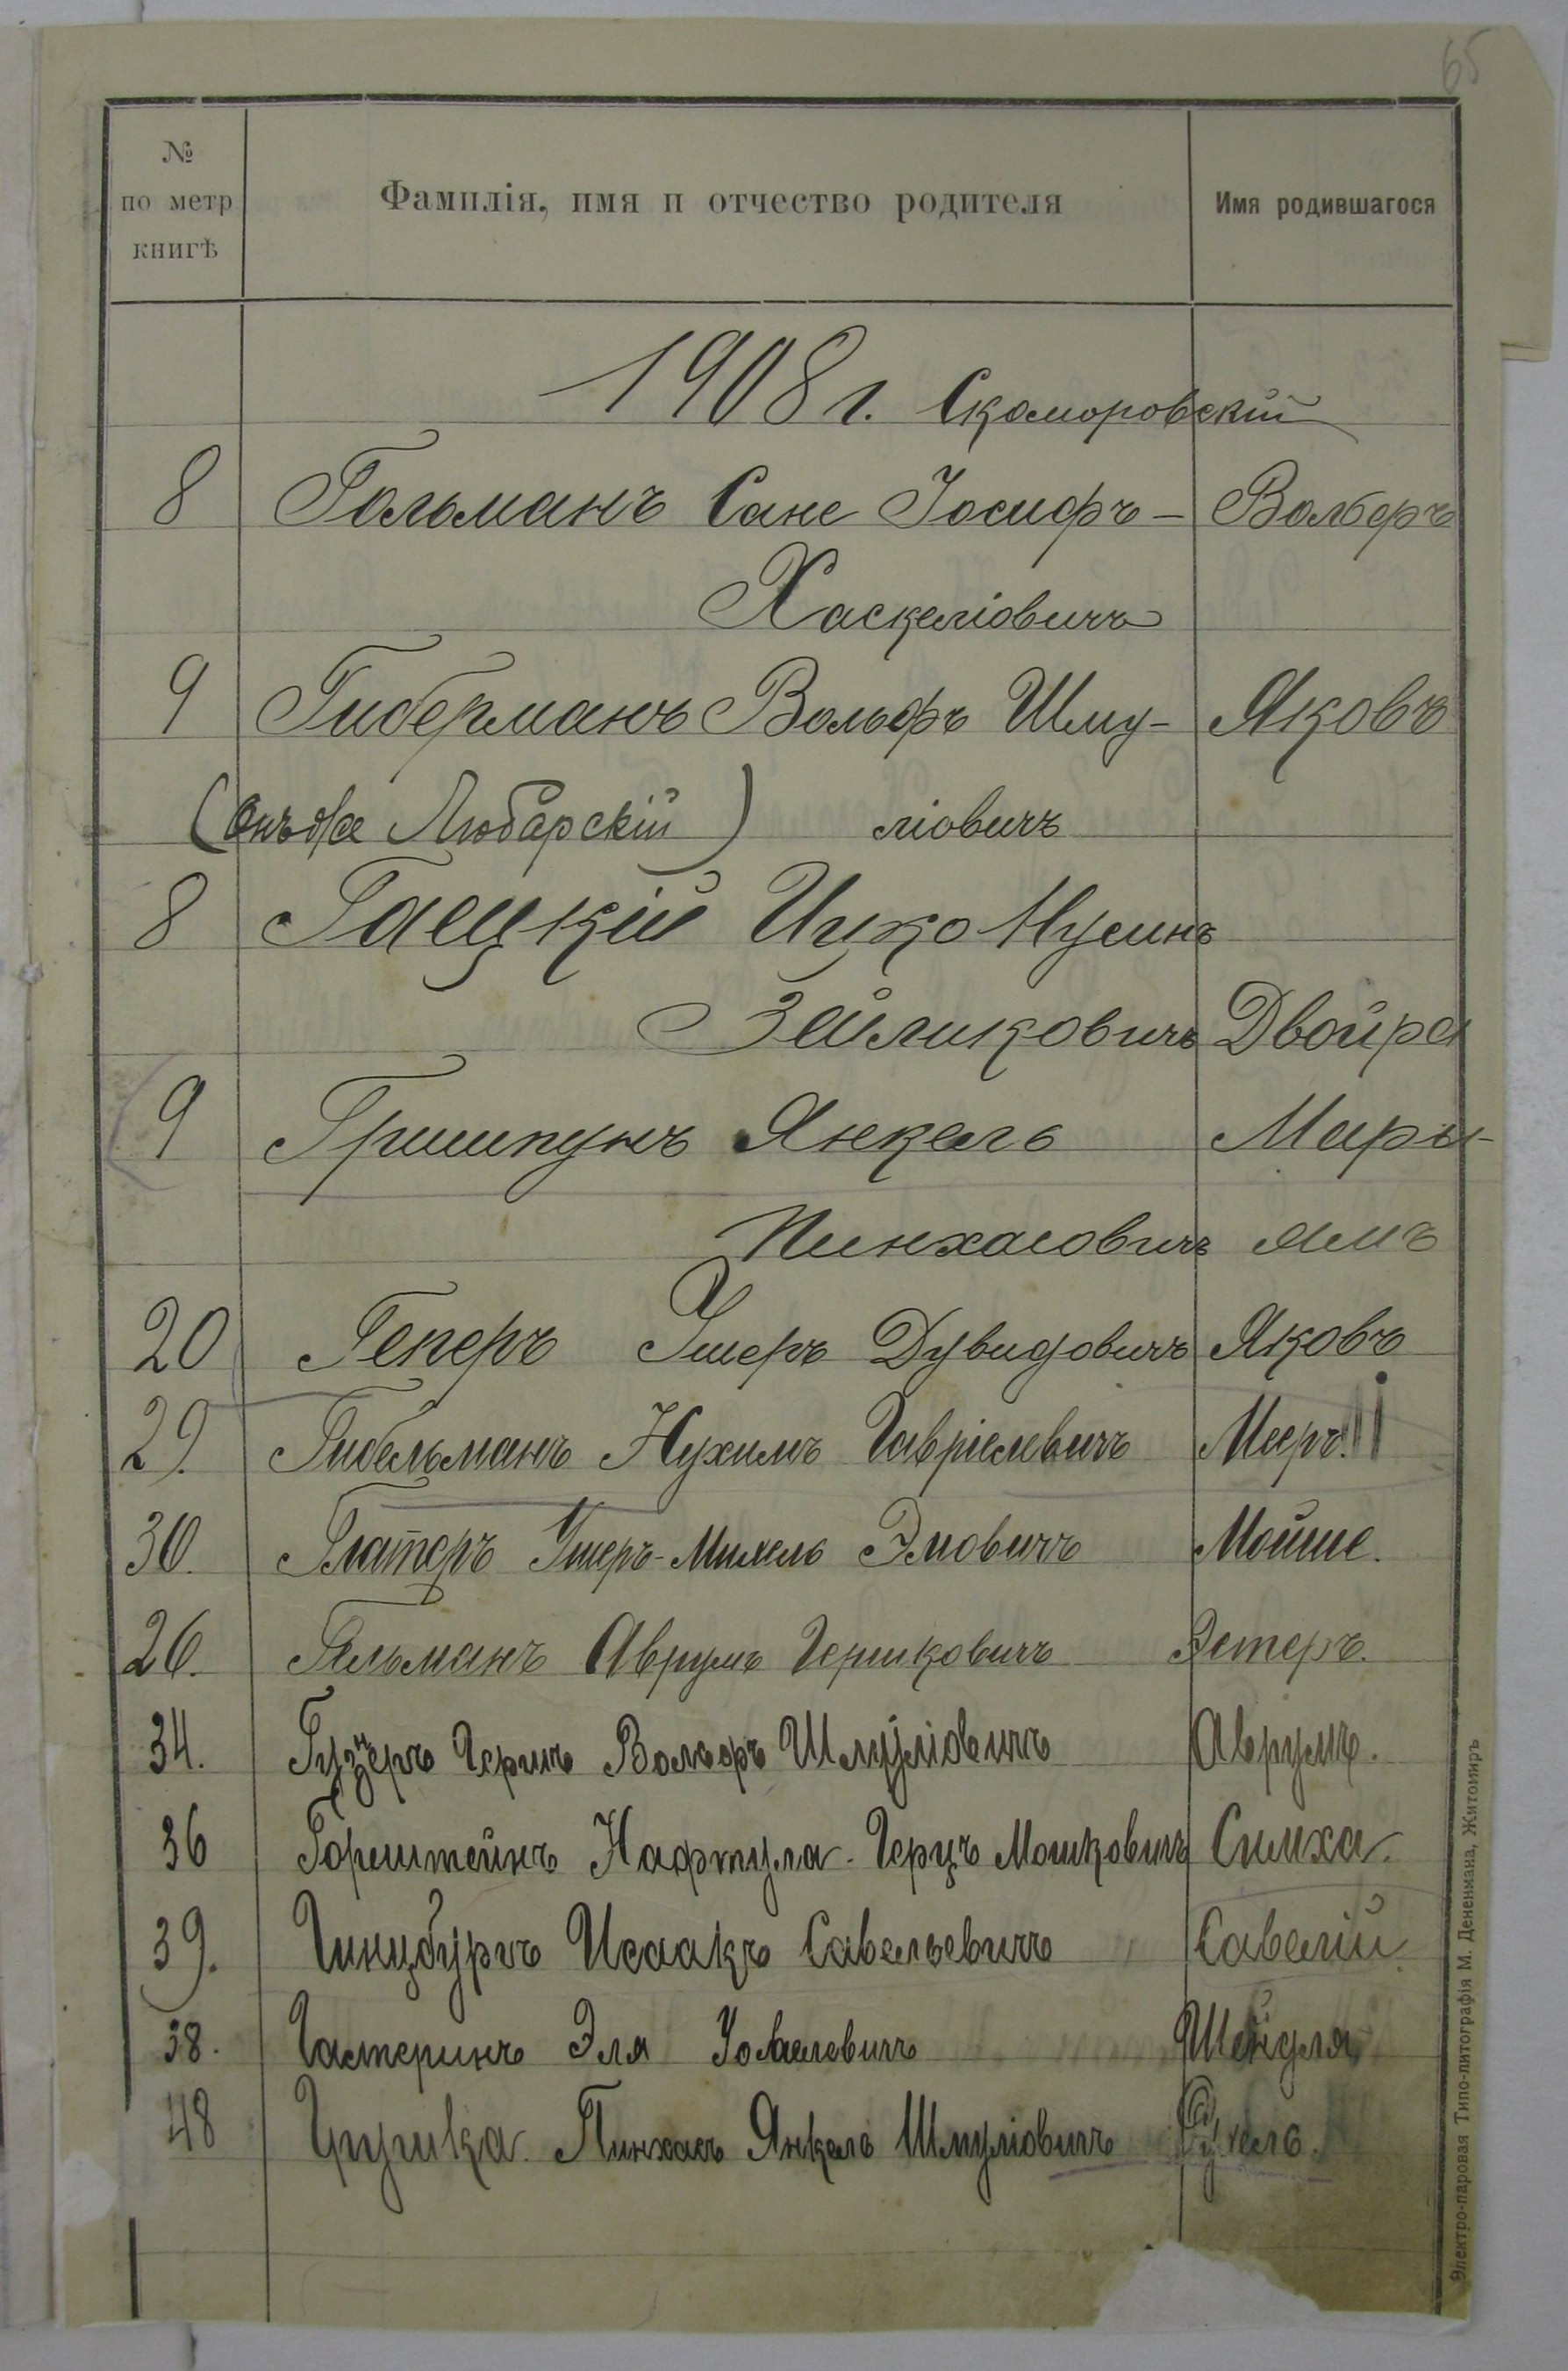 65
№
по метр
книгѣ
Фамилія, имя и отчество родителя
Имя родившагося
1908 г. Скоморовскій
8 Гольманъ Сане Іосифъ- Вольфъ
Хаскеліовичъ
9 Гиберманъ Вольфъ Шму- Яковъ
(онъ же Любарскій) ліовичъ
8 Гаецкій Ицко Нусинъ
Зейликовичъ Двойра
9 Гришпунъ Янкель Миры-
Пинхасовичъ ямъ
20 Геперъ Ушеръ Дувидовичъ Яковъ
29. Гибельманъ Нухимъ Гавріелевичъ Мееръ.
30. Глатеръ Ушеръ-Михель Эліовичъ Мойше.
26. Гельманъ Аврумъ Гершковичъ Эстеръ.
34. Гузнеръ Гершъ Вольфъ Шмуліовичъ Аврумъ.
36 Горештейнъ Нафтула-Герцъ Мошковичъ Симха.
39. Гинцбургъ Исаакъ Савельевичъ Савелій.
38. Гастеринъ Эля Шейндля
48 Грушка Пинхасъ Янкель Шмуліовичъ Рухель.
Электро-паровая Типо-литографія М. Дененмана, Житомиръ